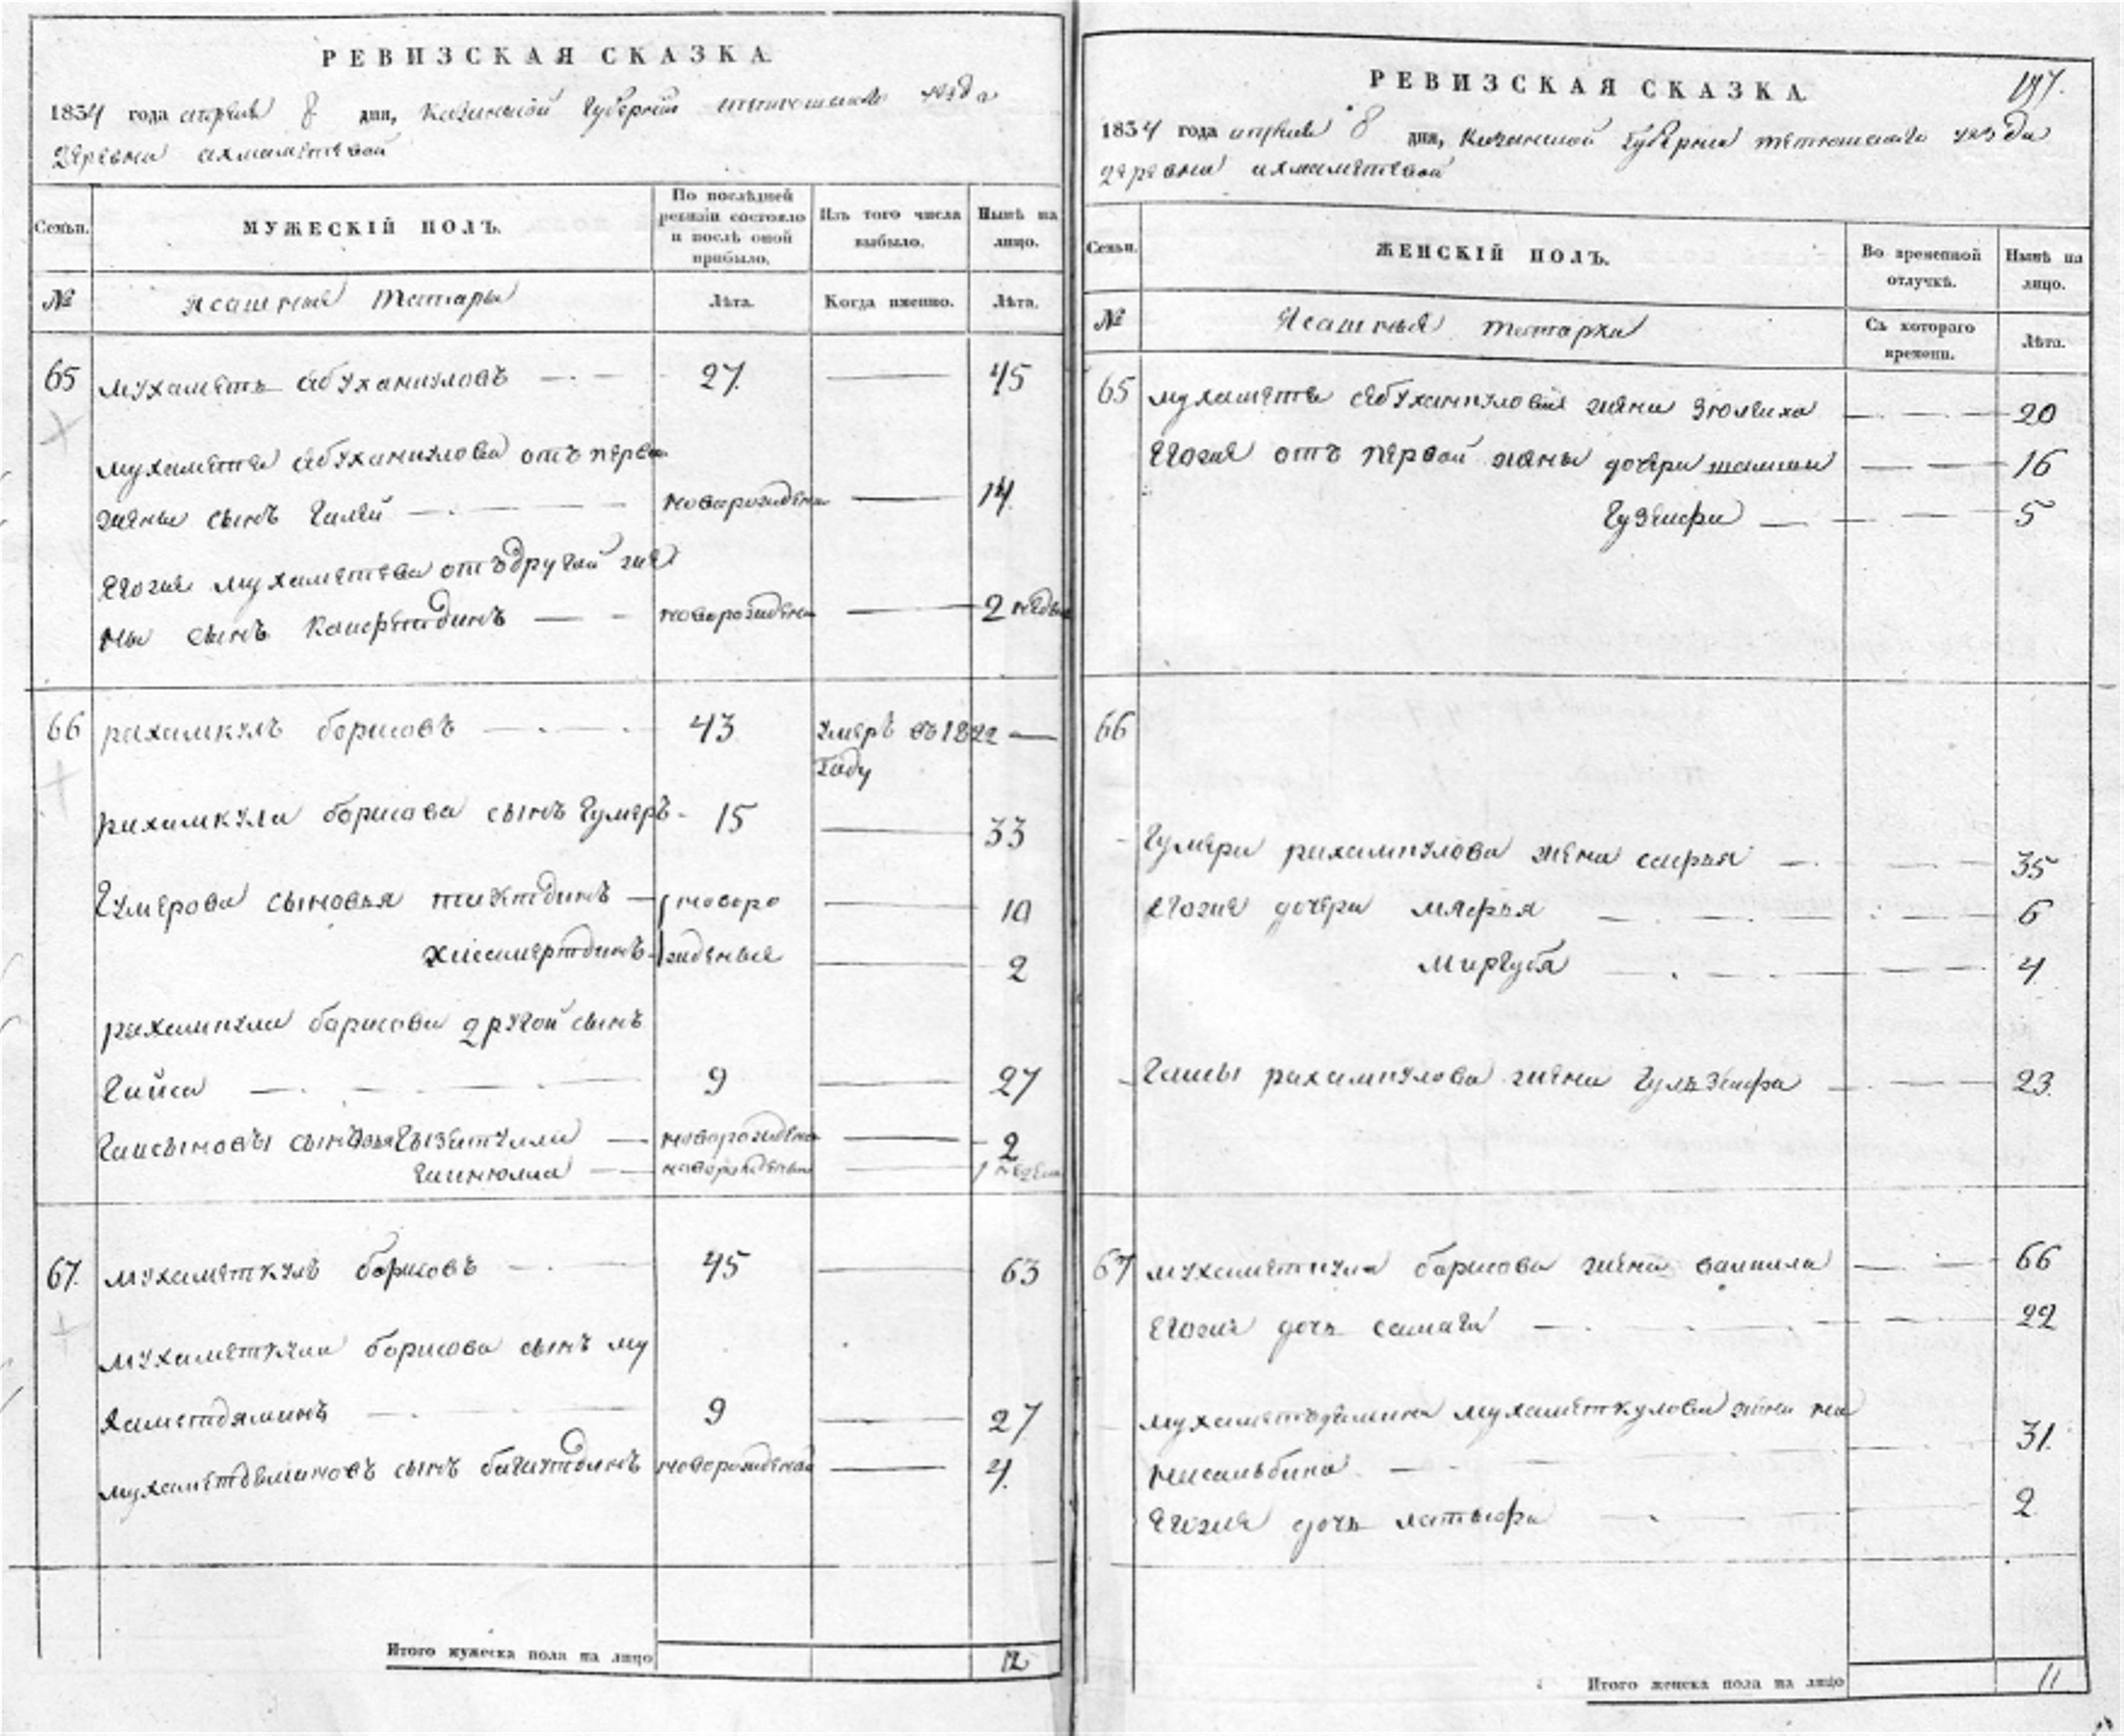 РЕВИЗСКАЯ СКАЗКА
1834 года апреля 8 дня, Казанской губернии тетюшскаго уезда
деревни ахмаметевой
Семьи.
МУЖЕСКІЙ ПОЛЪ.
По послѣдней ревизіи состояло и послѣ оной прибыло.
Изъ того числа выбыло.
Нынѣ на лицо.
№
Ясашныя татары
Лѣта.
Когда именно.
Лѣта.
65 мухаметъ абуханкуловъ 27 45
мухаметя абуханкулова отъ перво
жены сынъ галей новорожденн 14
Егоже мухаметева отъ другой же
ны сынъ 2 недел
66 рахамкулъ борисовъ 43 умеръ въ 1822
году
рахамкула борисова сынъ гумеръ 15 33
гумерова сыновья новоро 10
жденные 2
рахамкула борисова другой сынъ
гайса 9 27
сыновья новорожденн 2
новорожденны 1 недели
67. мухаметкулъ борисовъ 45 63
мухаметкула борисова сынъ му
хаметдяминъ 9 27
мухаметдяминовъ сынъ новорожденной 4.
Итого мужеска пола на лицо 12
197.
РЕВИЗСКАЯ СКАЗКА
1834 года апреля 8 дня, Казанской губернии тетюшскаго уезда
деревни ахмаметевой
Семьи.
ЖЕНСКІЙ ПОЛЪ.
Во временной отлучкѣ.
Нынѣ на лицо.
№
Ясашныя татарки
Съ котораго времени.
Лѣта.
65 мухаметя абуханкулова жена зюлиха 20
Егоже отъ первой жены дочери 16
5
66
гумера рахамкулова жена 35
егоже дочери мяфья 6
миргуба 4
гайсы рахамкулова жена гульзифа 23.
67 мухаметкула борисова жена 66
Егоже дочь 22
мухаметдямина мухаметкулова жена
31.
Егоже дочь 2
Итого женска пола на лицо 11